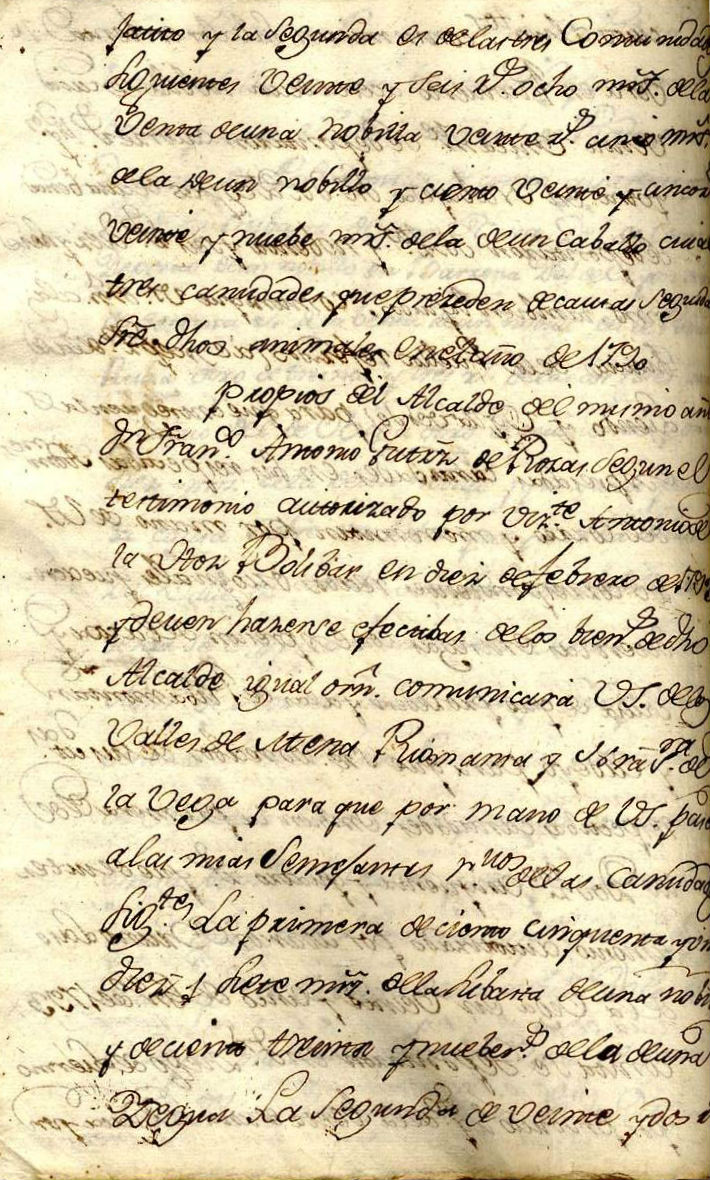 y la Segunda es de las tres Comunidad
siguientes Veinte y Seis rs. ocho mrs. dela
Venta de una Nobilla Veinte rs. cinco mrs.
dela de un nobillo y ciento Veinte y cinco
Veinte y nuebe mrs. dela de un Caballo cuias
tres cantidades que prezeden decausas Seguidas
Sre. dhos animales en el año de 1790
propios del Alcalde del mismo añ
Dn. Franco. Antonio Gutrrz de Rozas Segun el
testimonio autorizado por Vizte. Antonio de
la Hoz Bolibar en diez de febrero de 179
y deuen hazerse efectibas de los biens. de dho
Alcalde igual orn. comunicará VS. delos
Valles de Mena Rionansa y Sra. de
la Vega para que por mano de VS. pase
alas mias Semejantes rnos. delas Cantidad
Sigtes. La primera de ciento cinquenta y un
diez y siete mrs. dela Subasta de una nobi
y de ciento treinta y nuebe rs. de la de una
Yegua La Segunda de Veinte y dos